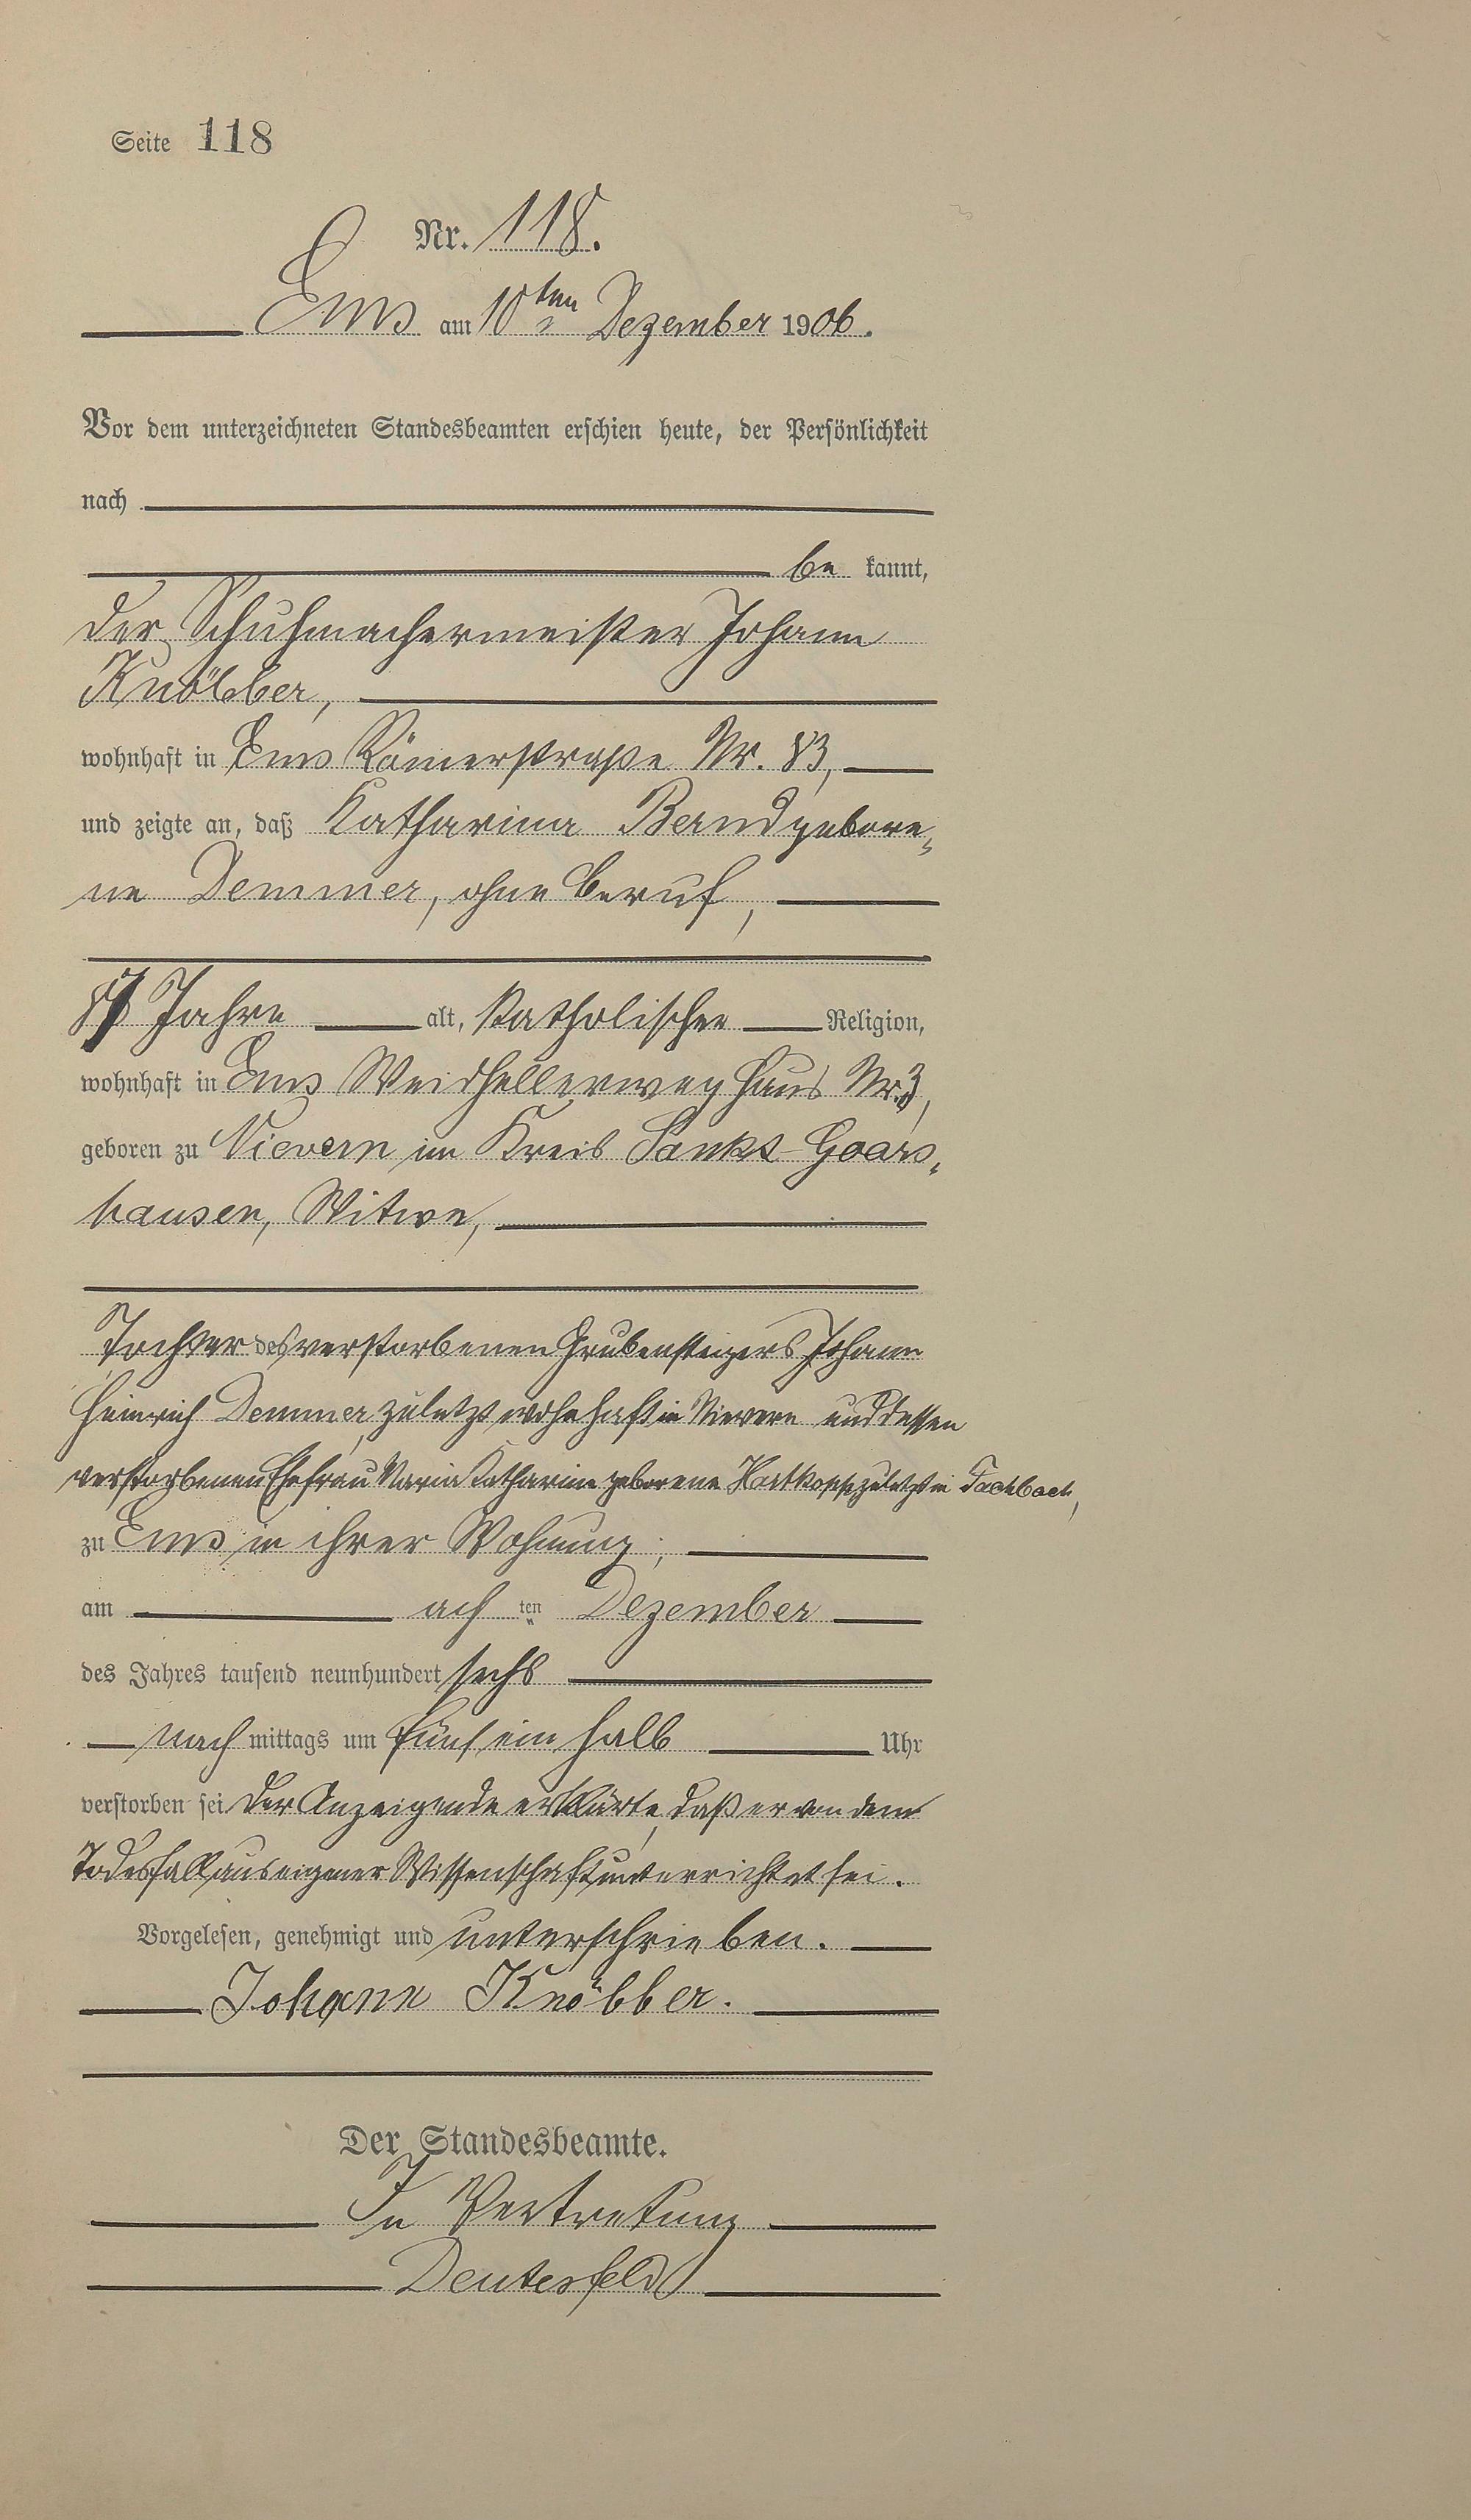 Seite 118
Nr. 118.
Ems am 10ten Dezember 1906.
Vor dem unterzeichneten Standesbeamten erschien heute, der Persönlichkeit
nach
be kannt,
der Schuhmachermeister Johann
Knöbber,
wohnhaft in Ems Römerstraße Nr. 83,
und zeigte an, daß Katharina Band gebore-
ne Demmer, ohne Beruf,
Jahre alt, katholischer Religion,
wohnhaft in Ems Weidhellerweg Haus Nr. 3,
geboren zu Nievern im Kreis Sankt-Goars-
hausen, Witwe,
Tochter des verstorbenen Grubensteigers Johann
Heinrich Demmer, zuletzt wohnhaft in Nievern und dessen
verstorbenen Ehefrau Maria Katharina geborene Hartkopf zuletzt in Fachbach,
zu Ems in ihrer Wohnung,
am ach ten Dezember
des Jahres tausend neunhundert sechs
nach mittags um fünf ein halb Uhr
verstorben sei. Der Anzeigende erklärte, daß er von dem
Todesfall aus eigener Wissenschaft unterrichtet sei.
Vorgelesen, genehmigt und unterschrieben.
Johann Knöbber.
Der Standesbeamte.
In Vertretung
Deutesfeld